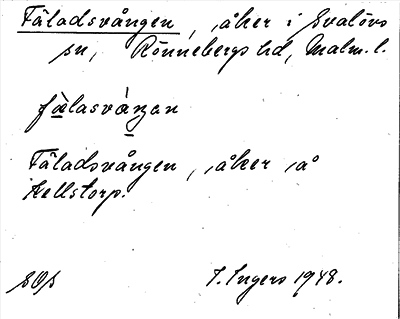 Fäladsvången, åker i Svalövs
sn, Rönnebergs hd, Malm. l.
fälasvaŋan
Fäladsvången, åker å
Källstorp.
I. Ingers 1948.